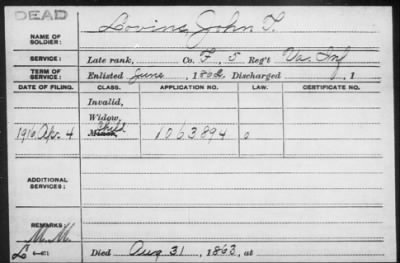 DEAD
NAME OF SOLDIER: Lovins, John T.
SERVICE: Late rank, Co. F, 5 Reg't Va. Inf
TERM OF SERVICE: Enlisted June, 1862 Discharged , 1
DATE OF FILING. CLASS. APPLICATION NO. LAW. CERTIFICATE NO.
Invalid,
Widow,
1916 Apr. 4 Child 1063894
Minor,
ADDITIONAL SERVICES:
REMARKS:
Died Aug 31, 1863, at